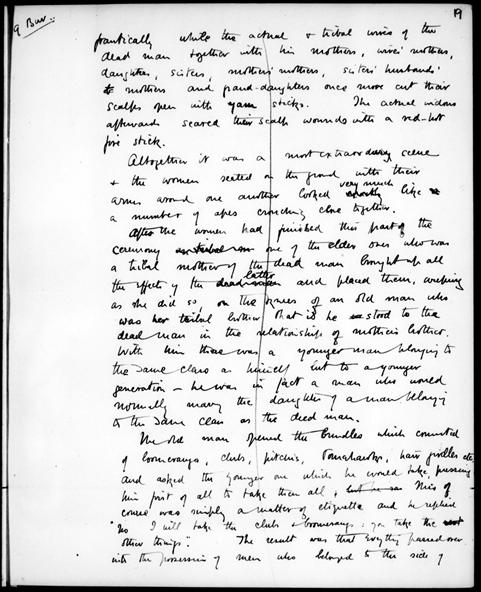 9 Bur.
19
frantically while the actual & tribal wives of the
dead man together with his mothers, wives' mothers,
daughters, sisters, mothers' mothers, sisters' husbands'
mothers and grand-daughters once more cut their
scalps open with yam sticks. The actual widows
afterwards seared their scalp wounds with a red-hot
fire stick.
Altogether it was a most extraordinary scene
& the women seated on the ground with their
arms around one another looked very much like
a number of apes crouching close together.
After the women had finished this part of the
ceremony one of the elder ones who was
a tribal mother of the dead man brought up all
the effects of the dead man latter and placed them, weeping
as she did so, on the knees of an old man who
was her tribal brother that is he stood to the
dead man in the relationship of mother's brother.
With him there was a younger man belonging to
the same class as himself but to a younger
generation – he was in fact a man who would
normally marry the daughter of a man belonging
to the same clan as the dead man.
The old man opened the bundles which consisted
of boomerangs, clubs, pitchis, tomahawks, hair girdles etc
and asked the younger one which he would take, pressing
him first of all to take them all, but he sa This of
course was simply a matter of etiquette and he replied
"No I will take the clubs & boomerangs: you take the
other things". The result was that everything passed over
into the possession of men who belonged to the side of